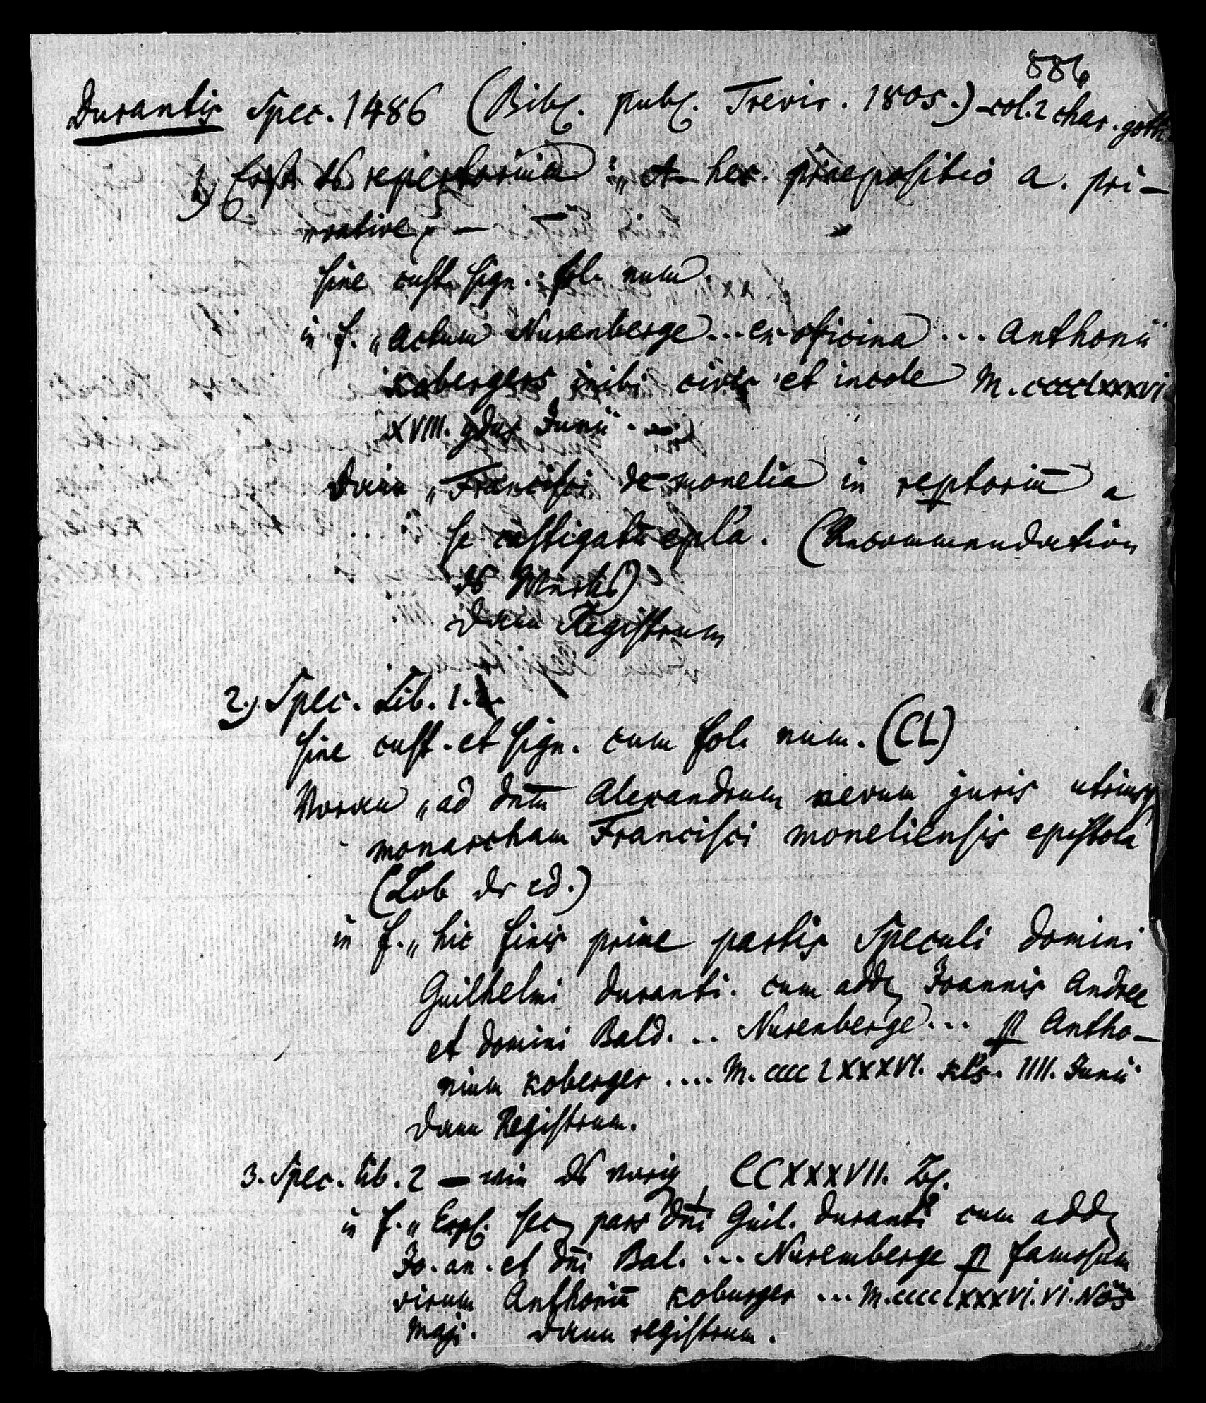 886
Durantis Spec. 1486 (Bibl. publ. Trevir. 1805.) col. 2 char. goth
1) Erst ds repertorium: „et hec. praepositio a. pri-
vative; —
sine cust. sign. fol. num.
in f. „Actum Nurenberge ... ex officina ... Anthonii
cobergers inibi civis et incole M.CCCCLXXXVI
XVIII. ydus Junii. —
Dann „Francisci de monelia in reptoriu a
se castigatu epla. (Recommendation
ds Werks)
dann Registrum
2.) Spec. Lib. 1.
sine cust. et sign. cum fol. num. (CL)
Voran „ad dnm Alexandrum nevum juris utriusq
monarcham Francisci moneliensis epistola
(Lob dr ed.)
in f. „hic finis prime partis Speculi domini
Guilhelmi duranti. cum addz Joannis Andree
et domini Bald. ... Nurenberge ... p Antho-
nium koberger .... M.CCCCLXXXVI. kls. IIII. Junii
dann Registrum.
3. Spec. lib. 2 — wie ds vorig, CCXXXVII.
in f. „Expl. sec pars dni Guil. duranti cum addz
Jo. an. et dni Bal. ... Nuremberge p famosum
virum Anthoniu koburger ... M.CCCCLXXXVI. VI. Nos
Maji. dann registrum.